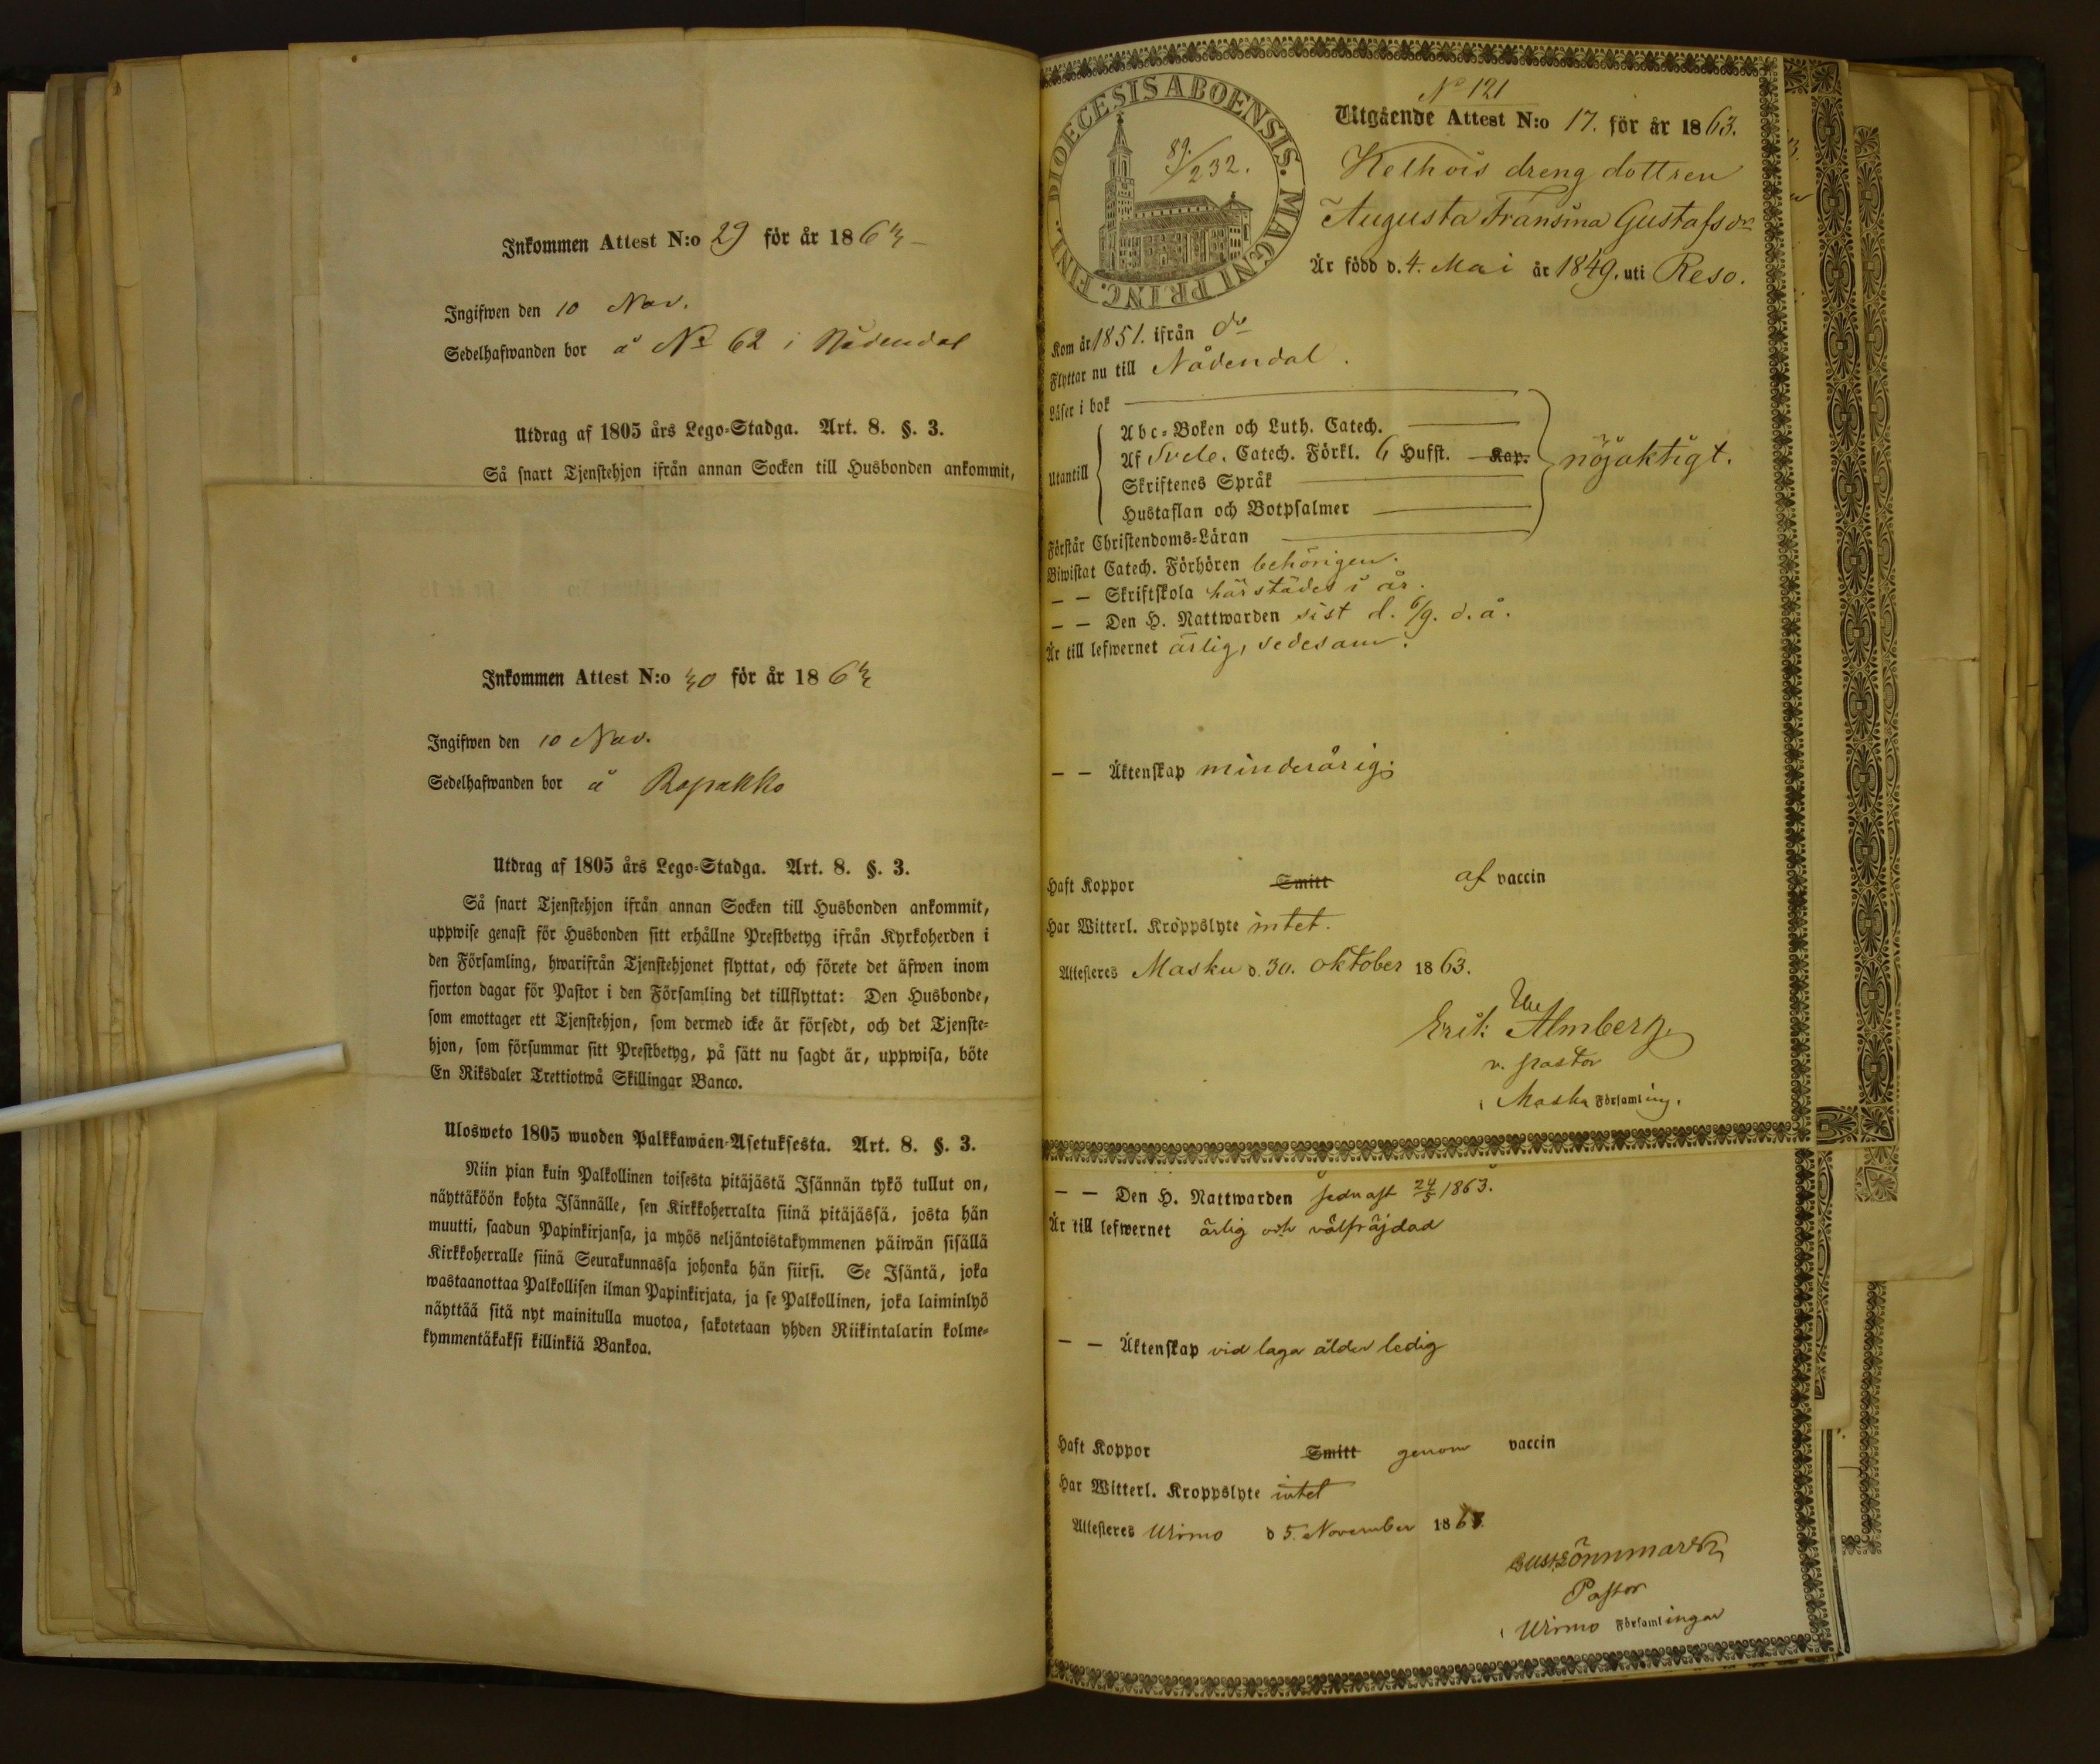 Inkommen Attest N:o 29 för år 1863
Ingifwen den 10 Nov.
Sedelhafwanden bor å No 62 i Nådendal
Utdrag af 1805 års Lego-Stadga. Art. 8. §. 3.
Så snart Tjenstehjon ifrån annan Socken till Husbonden ankommit,
Inkommen Attest N:o 30 för år 1863
Ingifwen den 10 Nov.
Sedelhafwanden bor å Rapakko
Utdrag af 1805 års Lego-Stadga. Art. 8. §. 3.
Så snart Tjenstehjon ifrån annan Socken till Husbonden ankommit,
uppwise genast för Husbonden sitt erhållne Prestbetyg ifrån Kyrkoherden i
den Församling, hwarifrån Tjenstehjonet flyttat, och förete det äfwen inom
fjorton dagar för Pastor i den Församling det tillflyttat: Den Husbonde,
som emottager ett Tjenstehjon, som dermed icke är försedt, och det Tjenste-
hjon, som försummar sitt Prestbetyg, på sätt nu sagdt är, uppwisa, böte
En Riksdaler Trettiotwå Skillingar Banco.
Ulosweto 1805 wuoden Palkkawäen-Asetuksesta. Art. 8. §. 3.
Niin pian kuin Palkollinen toisesta pitäjästä Isännän tykö tullut on,
näyttäköön kohta Isännälle, sen Kirkkoherralta siinä pitäjässä, josta hän
muutti, saadun Papinkirjansa, ja myös neljäntoistakymmenen päiwän sisällä
Kirkkoherralle siinä Seurakunnassa johonka hän siirsi. Se Isäntä, joka
wastaanottaa Palkollisen ilman Papinkirjata, ja se Palkollinen, joka laiminlyö
näyttää sitä nyt mainitulla muotoa, sakotetaan yhden Riikintalarin kolme-
kymmentäkaksi killinkiä Bankoa.
DIOECESIS ABOENSIS. MAGNI PRINC. FINL.
89./232.
No 121
Utgående Attest N:o 17. för år 1863.
Kelhois dreng dottren
Augusta Fransina Gustafsdr
Är född d. 4. Mai år 1849. uti Reso.
Kom år 1851. ifrån do
Flyttar nu till Nådendal.
Läser i bok
Utantill
Abc-Boken och Luth. Catech.
Af Sveb. Catech. Förkl. 6 Hufst. Kap.
Skriftenes Språk
Hustaflan och Botpsalmer
nöjaktigt.
Förstår Christendoms-Läran
Biwistat Catech. Förhören behörigen.
— — Skriftskola härstädes i år.
— — Den H. Nattwarden sist d. 6/9. d. å.
Är till lefwernet ärlig, sedesam.
— — Äktenskap minderårig;
Haft Koppor Smitt af vaccin
Har Witterl. Kroppslyte intet.
Attesteres Masku d. 30. oktober 1863.
Erik Almberg
v. pastor
i Masku Församling.
— — Den H. Nattwarden sednast 24/5 1863.
Är till lefwernet ärlig och välfräjdad
— — Äktenskap vid laga ålder ledig
Haft Koppor Smitt genom vaccin
Har Witterl. Kroppslyte intet
Attesteres Wirmo d 5. November 1863.
Gust. Lönnmark
Pastor
i Wirmo Församlingar